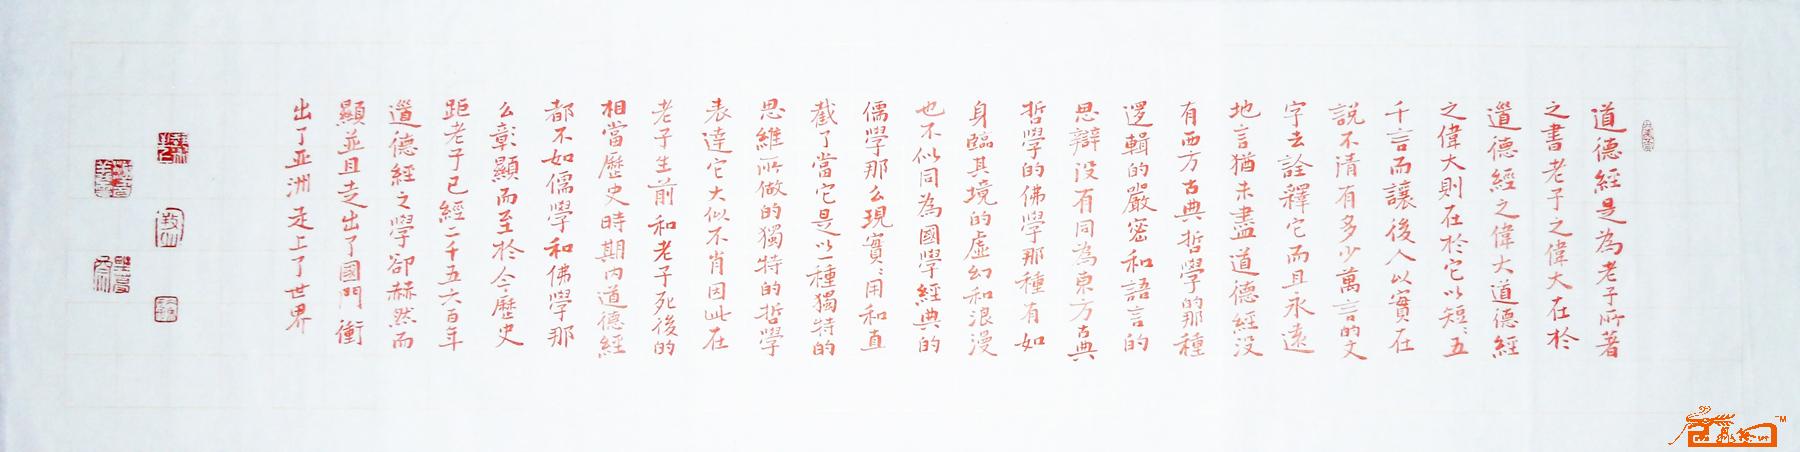 道德經是為老子所著
之書老子之偉大在於
道德經之偉大道德經
之偉大則在於它以短短五
千言而讓後人以實在
說不清有多少萬言的文
字去詮釋它而且永遠
地言猶未盡道德經沒
有西方古典哲學的那種
邏輯的嚴密和語言的
思辯没有同為東方古典
哲學的佛學那種有如
身臨其境的虛幻和浪漫
也不似同為國學經典的
儒學那么現實實用和直
截了當它是以一種獨特的
思維所做的獨特的哲學
表達它大似不肖因此在
老子生前和老子死後的
相當歷史時期内道德經
都不如儒學和佛學那
么彰顯而至於今歷史
距老子已經二千五六百年
道德經之學卻赫然而
顯並且走出了國門衝
出了亚洲走上了世界